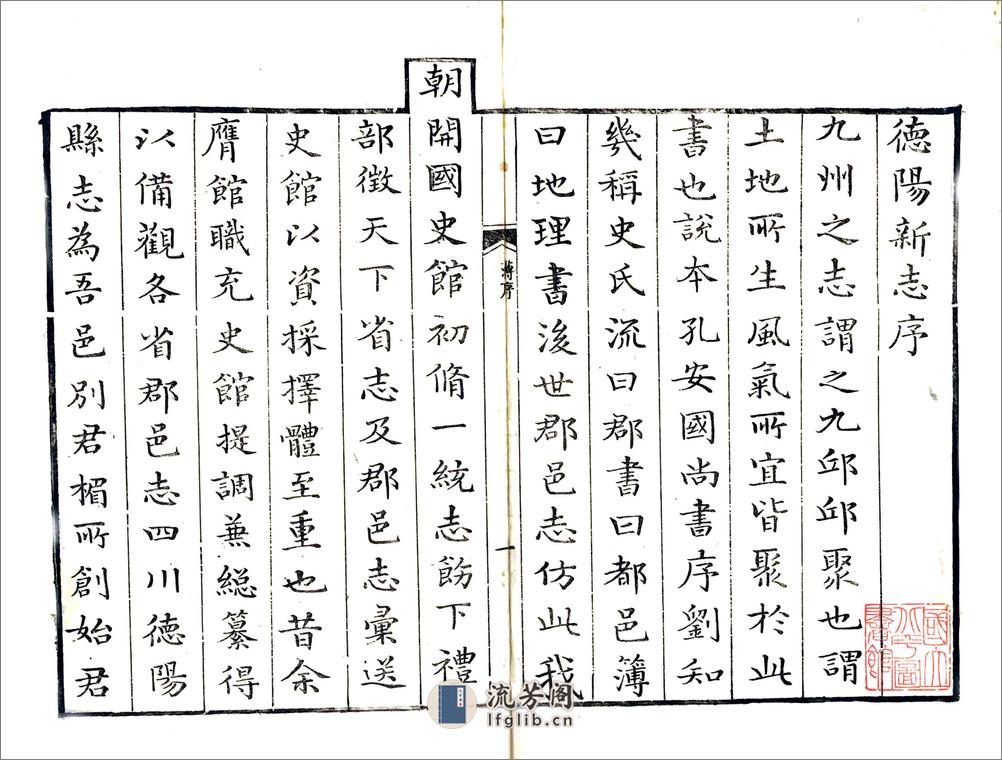 德陽新志序
九州之志謂之九邱邱聚也謂
土地所生風氣所宜皆聚於此
書也說本孔安國尚書序劉知
幾稱史氏流曰郡書曰都邑簿
曰地理書後世郡邑志仿此我
蔣序
一
朝開國史館初脩一統志飭下禮
部徵天下省志及郡邑志彙送
史館以資採擇體至重也昔余
膺館職充史館提調兼總纂得
以備觀各省郡邑志四川德陽
縣志為吾邑別君楣所創始君
國立北平圖書館
流芳阁
lfglib.cn